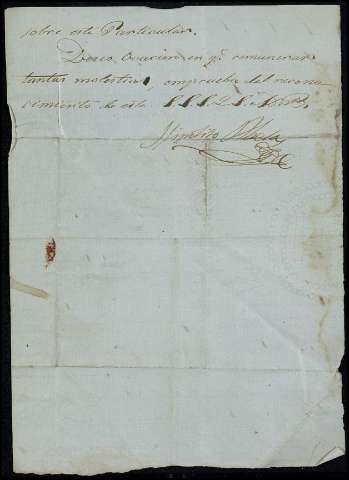 sobre este Particular.
Deseo Ocasion en q.e remunerar
tantas molestias, en prueba del recono
cimiento de este S.S.S.
Hipolito